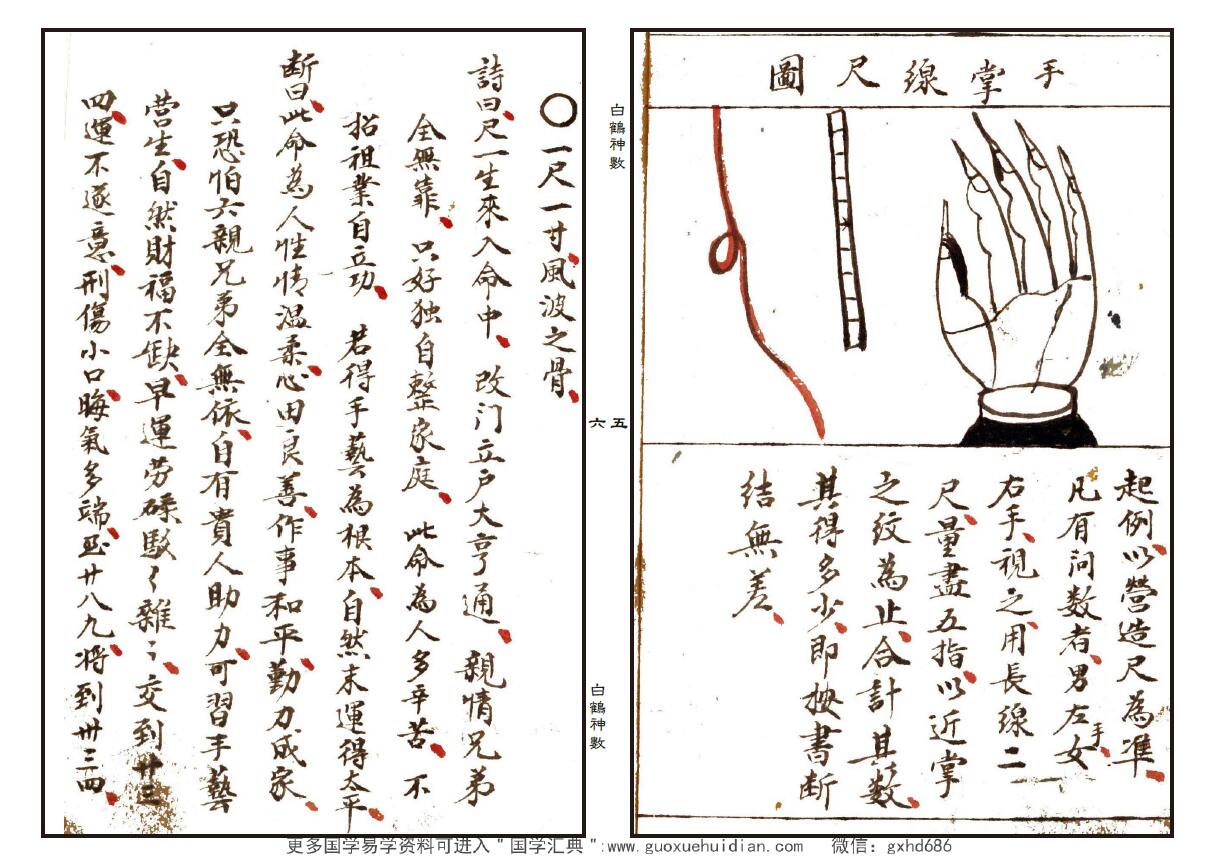 手掌線尺圖
起例以營造尺為準
凡有问数者男左手女
右手視之用長線二
尺量盡五指以近掌
之纹為止合計其数
其得多少即按書断
結無差
白鶴神數
五
六
白鶴神數
〇一尺一寸風波之骨
詩曰尺一生來入命中 改门立户大亨通 親情兄弟
全無靠 只好独自整家庭 此命為人多辛苦 不
招祖業自立功 若得手藝為根本自然末運得太平
断曰此命為人性情温柔心田良善作事和平勤力成家
只恐怕六親兄弟全無依自有貴人助力可習手藝
营生自然財福不缺早運劳碌駁々雜々交到廿三
四運不遂意刑傷小口晦氣多端至廿八九将到卅三四
更多国学易学资料可进入＂国学汇典＂:www.guoxuehuidian.com 微信：gxhd686